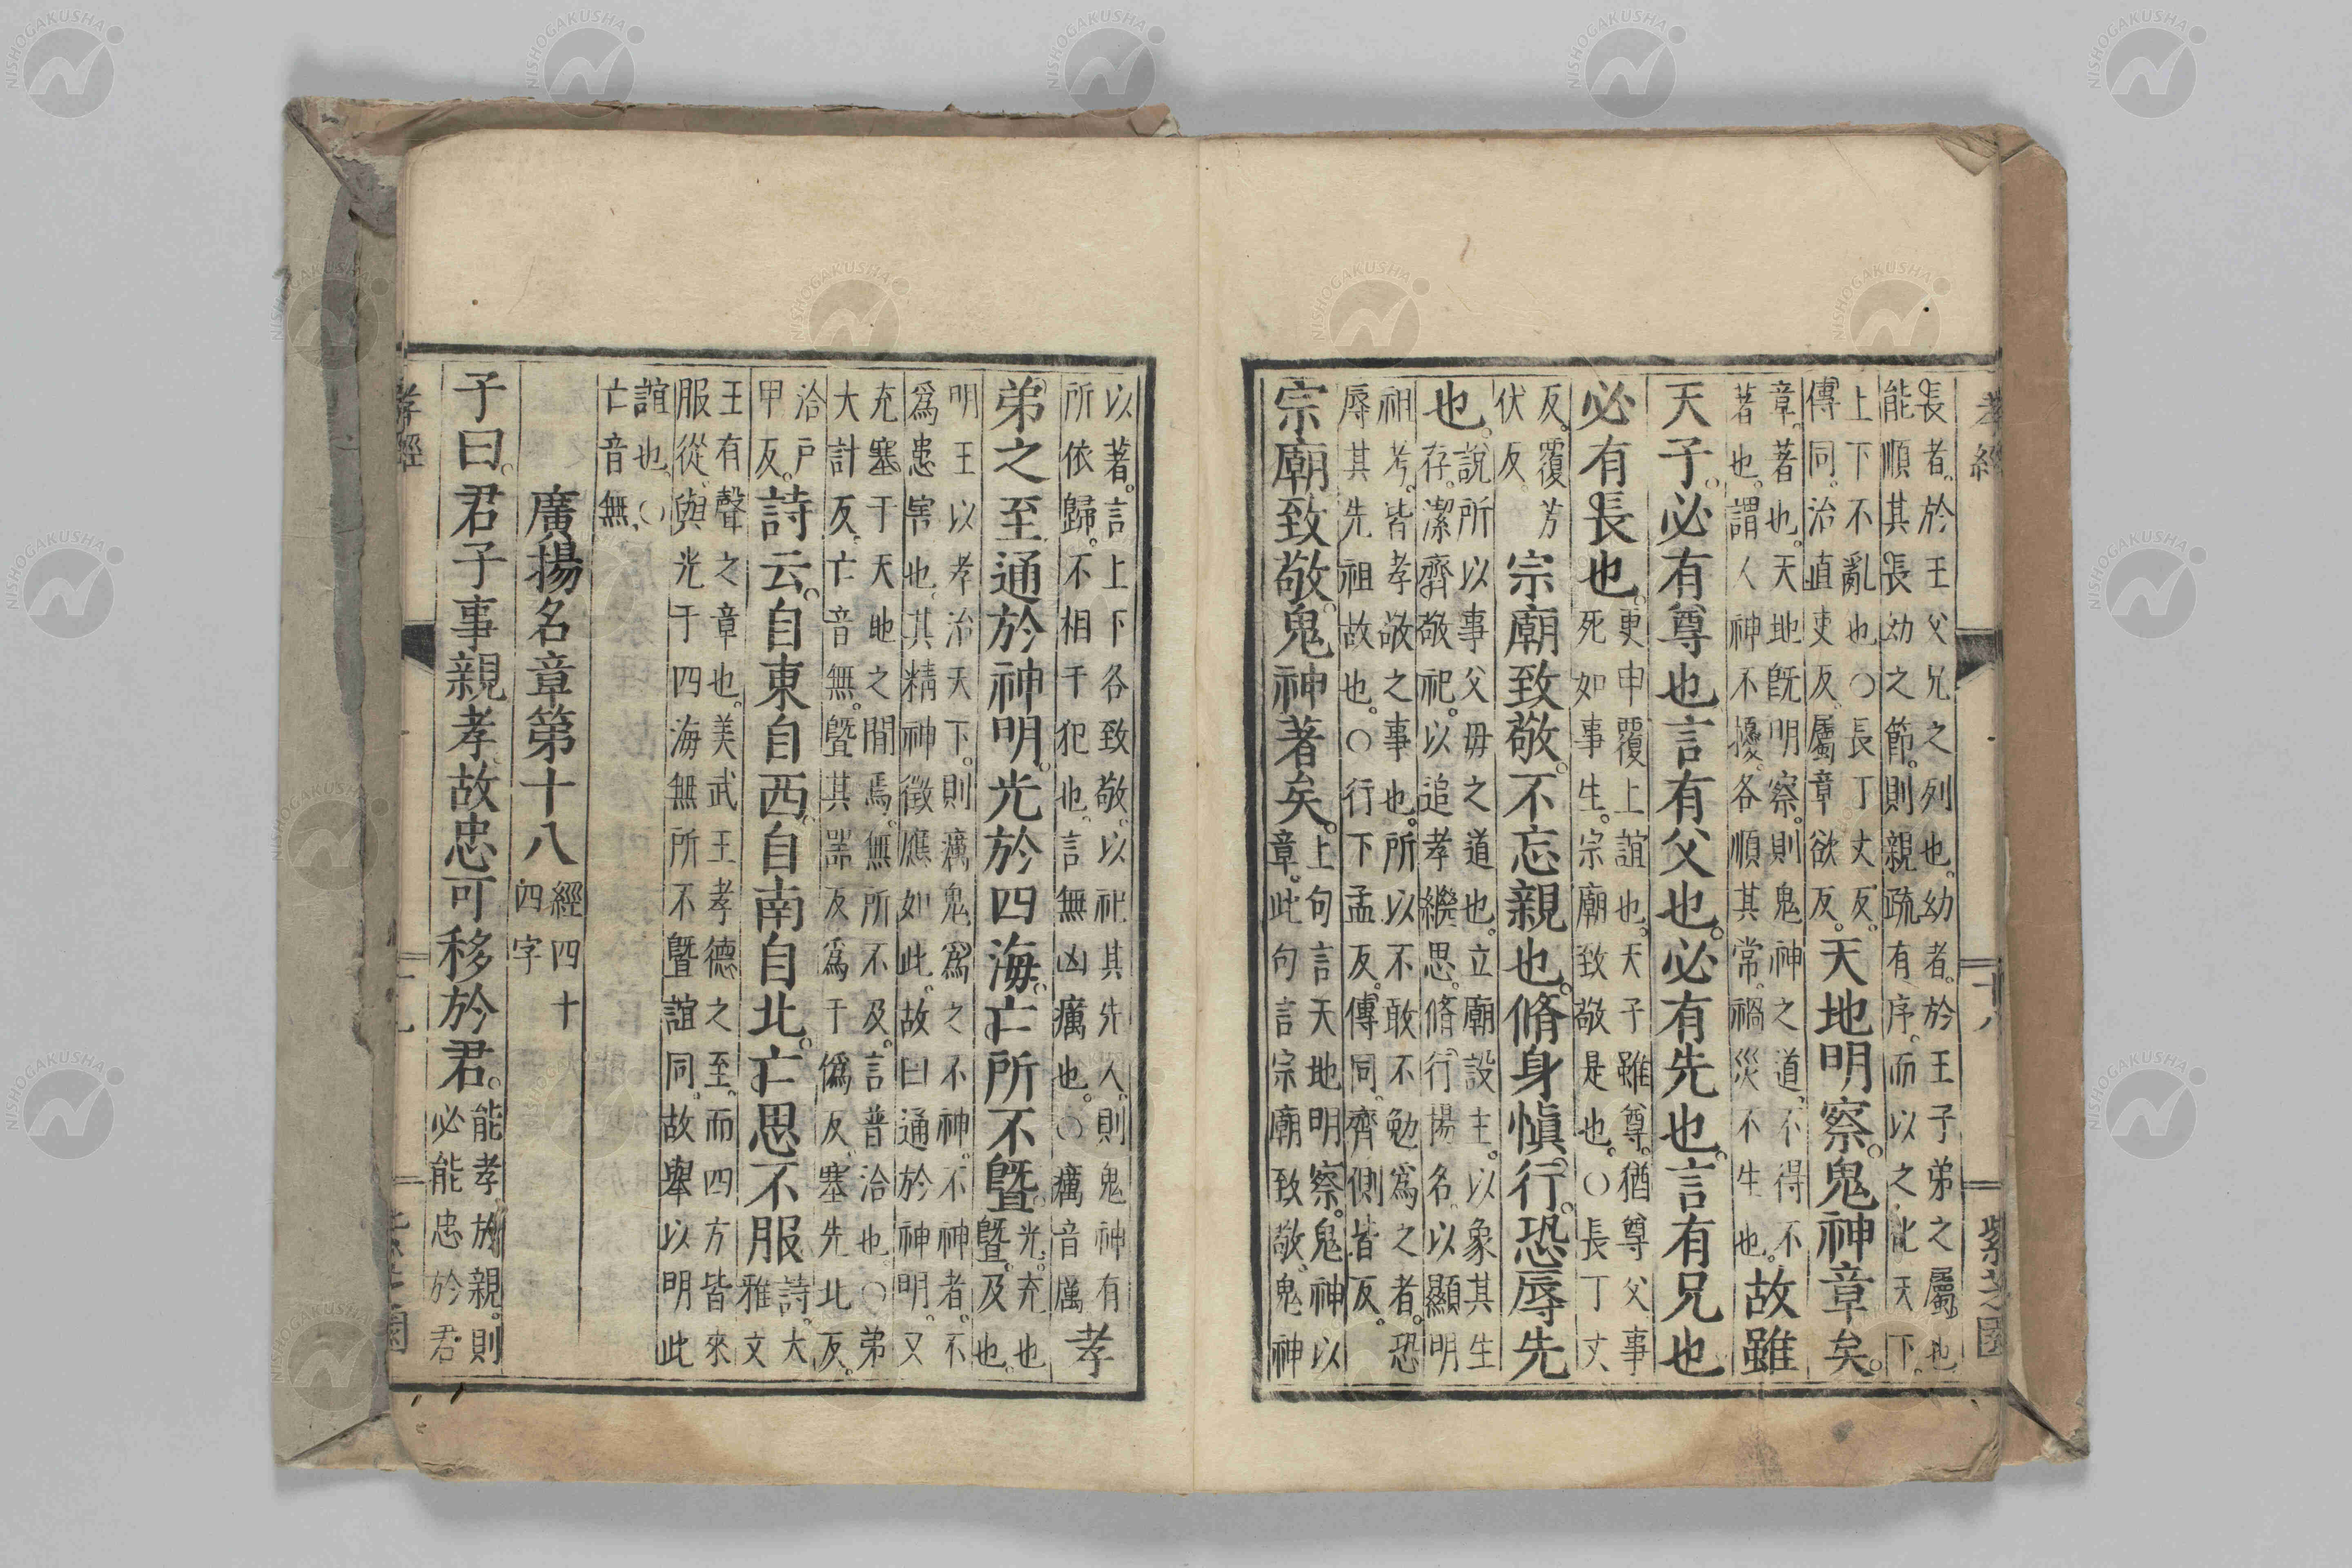 長者。於王父兄之列也。幼者。於王子弟之屬也
能順其長幼之節。則親疏有序。而以之化天下。
上下不亂也。○長丁丈反。
傳同。治直吏反。屬章欲反。
天地明察。鬼神章矣。
章。著也。天地旣明察。則鬼神之道。不得不
著也。謂人神不擾。各順其常。禍災不生也。
故雖
天子。必有尊也。言有父也。必有先也。言有兄也
必有長也。
更申覆上誼也。天子雖尊。猶尊父。事
死如事生。宗廟致敬是也。○長丁丈
反。覆芳
伏反。
宗廟致敬。不忘親也。脩身愼行。恐辱先
也。
說所以事父母之道也。立廟設主。以象其生
存。潔齊敬祀。以追孝繼思。脩行揚名。以顯明
祖考。皆孝敬之事也。所以不敢不勉爲之者。恐
辱其先祖故也。○行下孟反。傳同。齊側皆反。
宗廟致敬。鬼神著矣。
上句言天地明察。鬼神以
章。此句言宗廟致敬。鬼神
以著。言上下各致敬。以祀其先人。則鬼神有
所依歸。不相干犯也。言無凶癘也。○癘音厲
孝
弟之至。通於神明。光於四海。亡所不曁。
光。充也
曁。及也。
明王以孝治天下。則癘鬼爲之不神。不神者。不
爲患害也。其精神徵應如此。故曰通於神明。又
充塞于天地之間焉。無所不及。言普洽也。○弟
大計反。亡音無。曁其器反。爲于僞反。塞先北反。
洽戶
甲反。
詩云。自東自西。自南自北。亡思不服
詩。大
雅文
王有聲之章也。美武王孝德之至。而四方皆來
服從。與光于四海無所不曁誼同。故舉以明此
誼也。○
亡音無。
廣揚名章第十八
經四十
四字
子曰。君子事親孝。故忠可移於君。
能孝於親。則
必能忠於君
孝經
十八
紫芝園